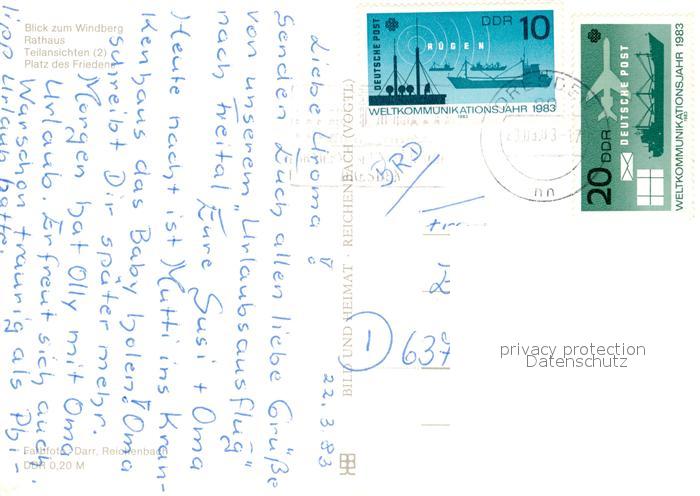 Blick zum Windberg
Rathaus
Teilansichten (2)
Platz des Friedens
22.3.83
Liebe Uroma!
Senden Euch allen liebe Grüße
von unserem "Urlaubsausflug"
nach Freital Eure Susi + Oma
Heute nacht ist Mutti ins Kran-
kenhaus das Baby holen! Oma
schreibt Dir später mehr.
Morgen hat Olly mit Oma
Urlaub. Er freut sich auch.
War schon traurig als Phi-
lipp Urlaub hatte.
Farbfoto: Darr, Reichenbach
DDR 0,20 M
BILD UND HEIMAT · REICHENBACH (VOGTL)
DEUTSCHE POST
DDR 10
RÜGEN
WELTKOMMUNIKATIONSJAHR 1983
1983
20 DDR
DEUTSCHE POST
WELTKOMMUNIKATIONSJAHR 1983
1983
BRD
1
637
privacy protection
Datenschutz